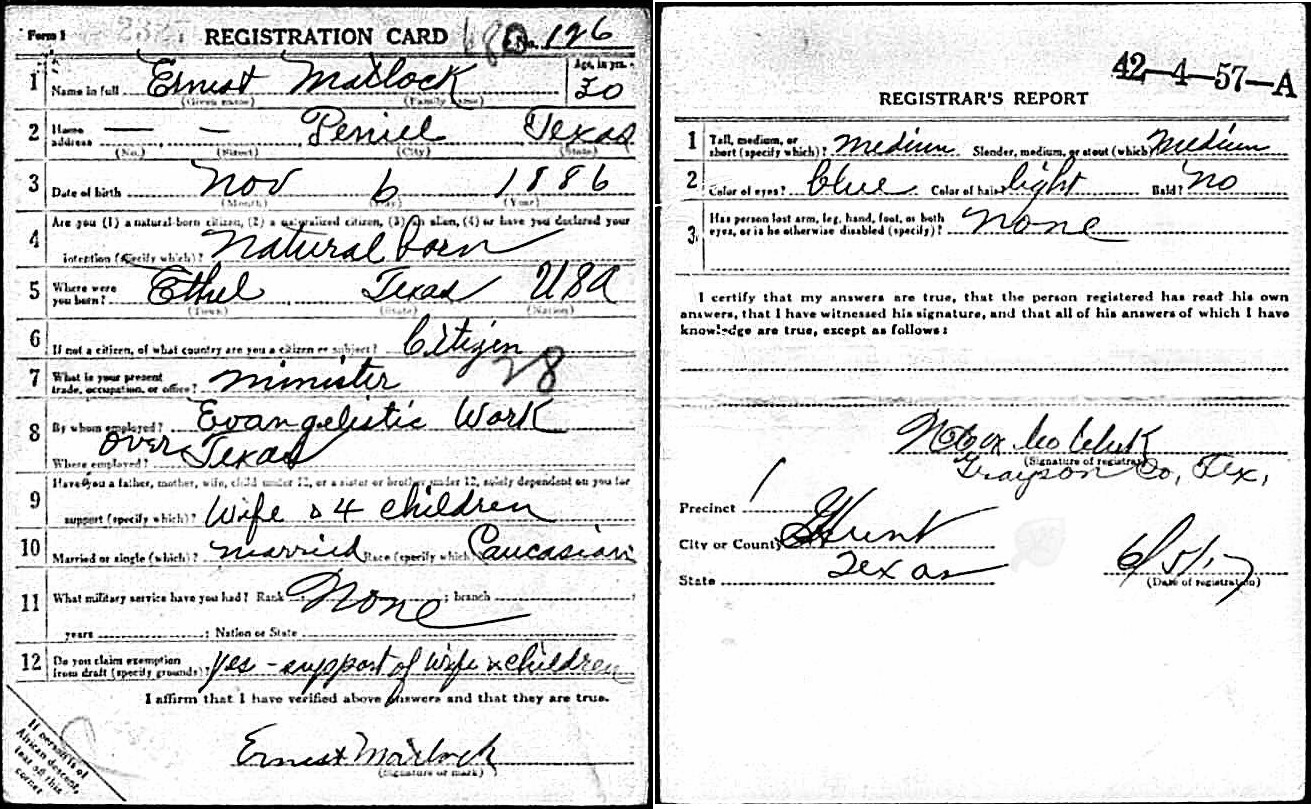 Form 1 REGISTRATION CARD No. 126
1 Name in full Ernest Matlock Age, in yrs. 30
(Given name) (Family name)
2 Home address — — Peniel Texas
(No.) (Street) (City) (State)
3 Date of birth Nov 6 1886
(Month) (Day) (Year)
Are you (1) a natural-born citizen, (2) a naturalized citizen, (3) an alien, (4) or have you declared your
4 intention (specify which)? Natural born
5 Where were you born? Ethel Texas USA
(Town) (State) (Nation)
6 If not a citizen, of what country are you a citizen or subject? Citizen
7 What is your present trade, occupation, or office? minister 28
8 By whom employed? Evangelistic Work
Where employed? over Texas
9 Have you a father, mother, wife, child under 12, or a sister or brother under 12, solely dependent on you for
support (specify which)? Wife & 4 children
10 Married or single (which)? married Race (specify which)? Caucasian
11 What military service have you had? Rank None ; branch ;
years ; Nation or State
12 Do you claim exemption from draft (specify grounds)? yes - support of wife & children
I affirm that I have verified above answers and that they are true.
Ernest Matlock
(Signature or mark)
If person is of
African descent,
tear off this
corner
42-4-57-A
REGISTRAR'S REPORT
1 Tall, medium, or short (specify which)? medium Slender, medium, or stout (which)? medium
2 Color of eyes? blue Color of hair? light Bald? no
3 Has person lost arm, leg, hand, foot, or both eyes, or is he otherwise disabled (specify)? none
I certify that my answers are true, that the person registered has read his own
answers, that I have witnessed his signature, and that all of his answers of which I have
knowledge are true, except as follows:
Co Clerk
(Signature of registrar)
Grayson Co, Tex,
Precinct 1
City or County Hunt
State Texas
6/5/17
(Date of registration)